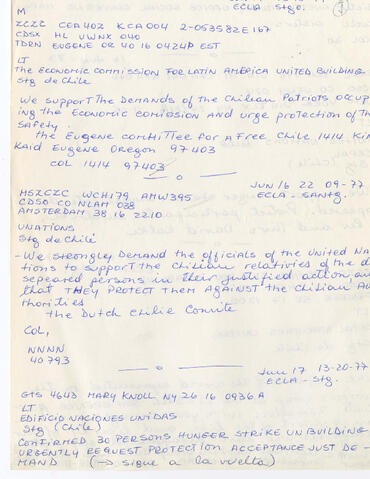 ECLA - Stgo.
M
ZCZC CEA402 KCA004 2-053582E167
CDSX HL UWNX 040
TDRN EUGENE OR 40 16 0424P EST
LT
the ECONOMIC COMMISSION FOR LATIN AMERICA UNITED BUILDING
Stg de CHILE
We support the DEMANDS of the Chilian Patriots occup
ing the Economic comission and urge protection of the
safety.
the Eugene committee for a Free Chile 1414 Kin
Kaid Eugene Oregon 97403
COL 1414 97403
Jun 16 22 09-77
ECLA - Santg.
MSZCZC WCH179 AMW395
CDSO CO NLAM 038
AMSTERDAM 38 16 2210
UNATIONS
Stg de Chile
- We strongley demand the officials of the United Na
tions to support the Chilean relativies of the d
sepeared persons in their justified action an
that they protect them against the Chilian Au
thorities
the Dutch Chilie Comite
COL,
NNNN
40793
Jun 17 13-20-77
ECLA - Stg.
GTS 4643 MARY KNOLL NY 26 16 0936A
LT
EDIFICIO NACIONES UNIDAS
Stg (Chile)
CONFIRMED 30 PERSONS HUNGER STRIKE UN BUILDING
URGENTLY REQUEST PROTECTION ACCEPTANCE JUST DE-
MAND (→ sigue a la vuelta)